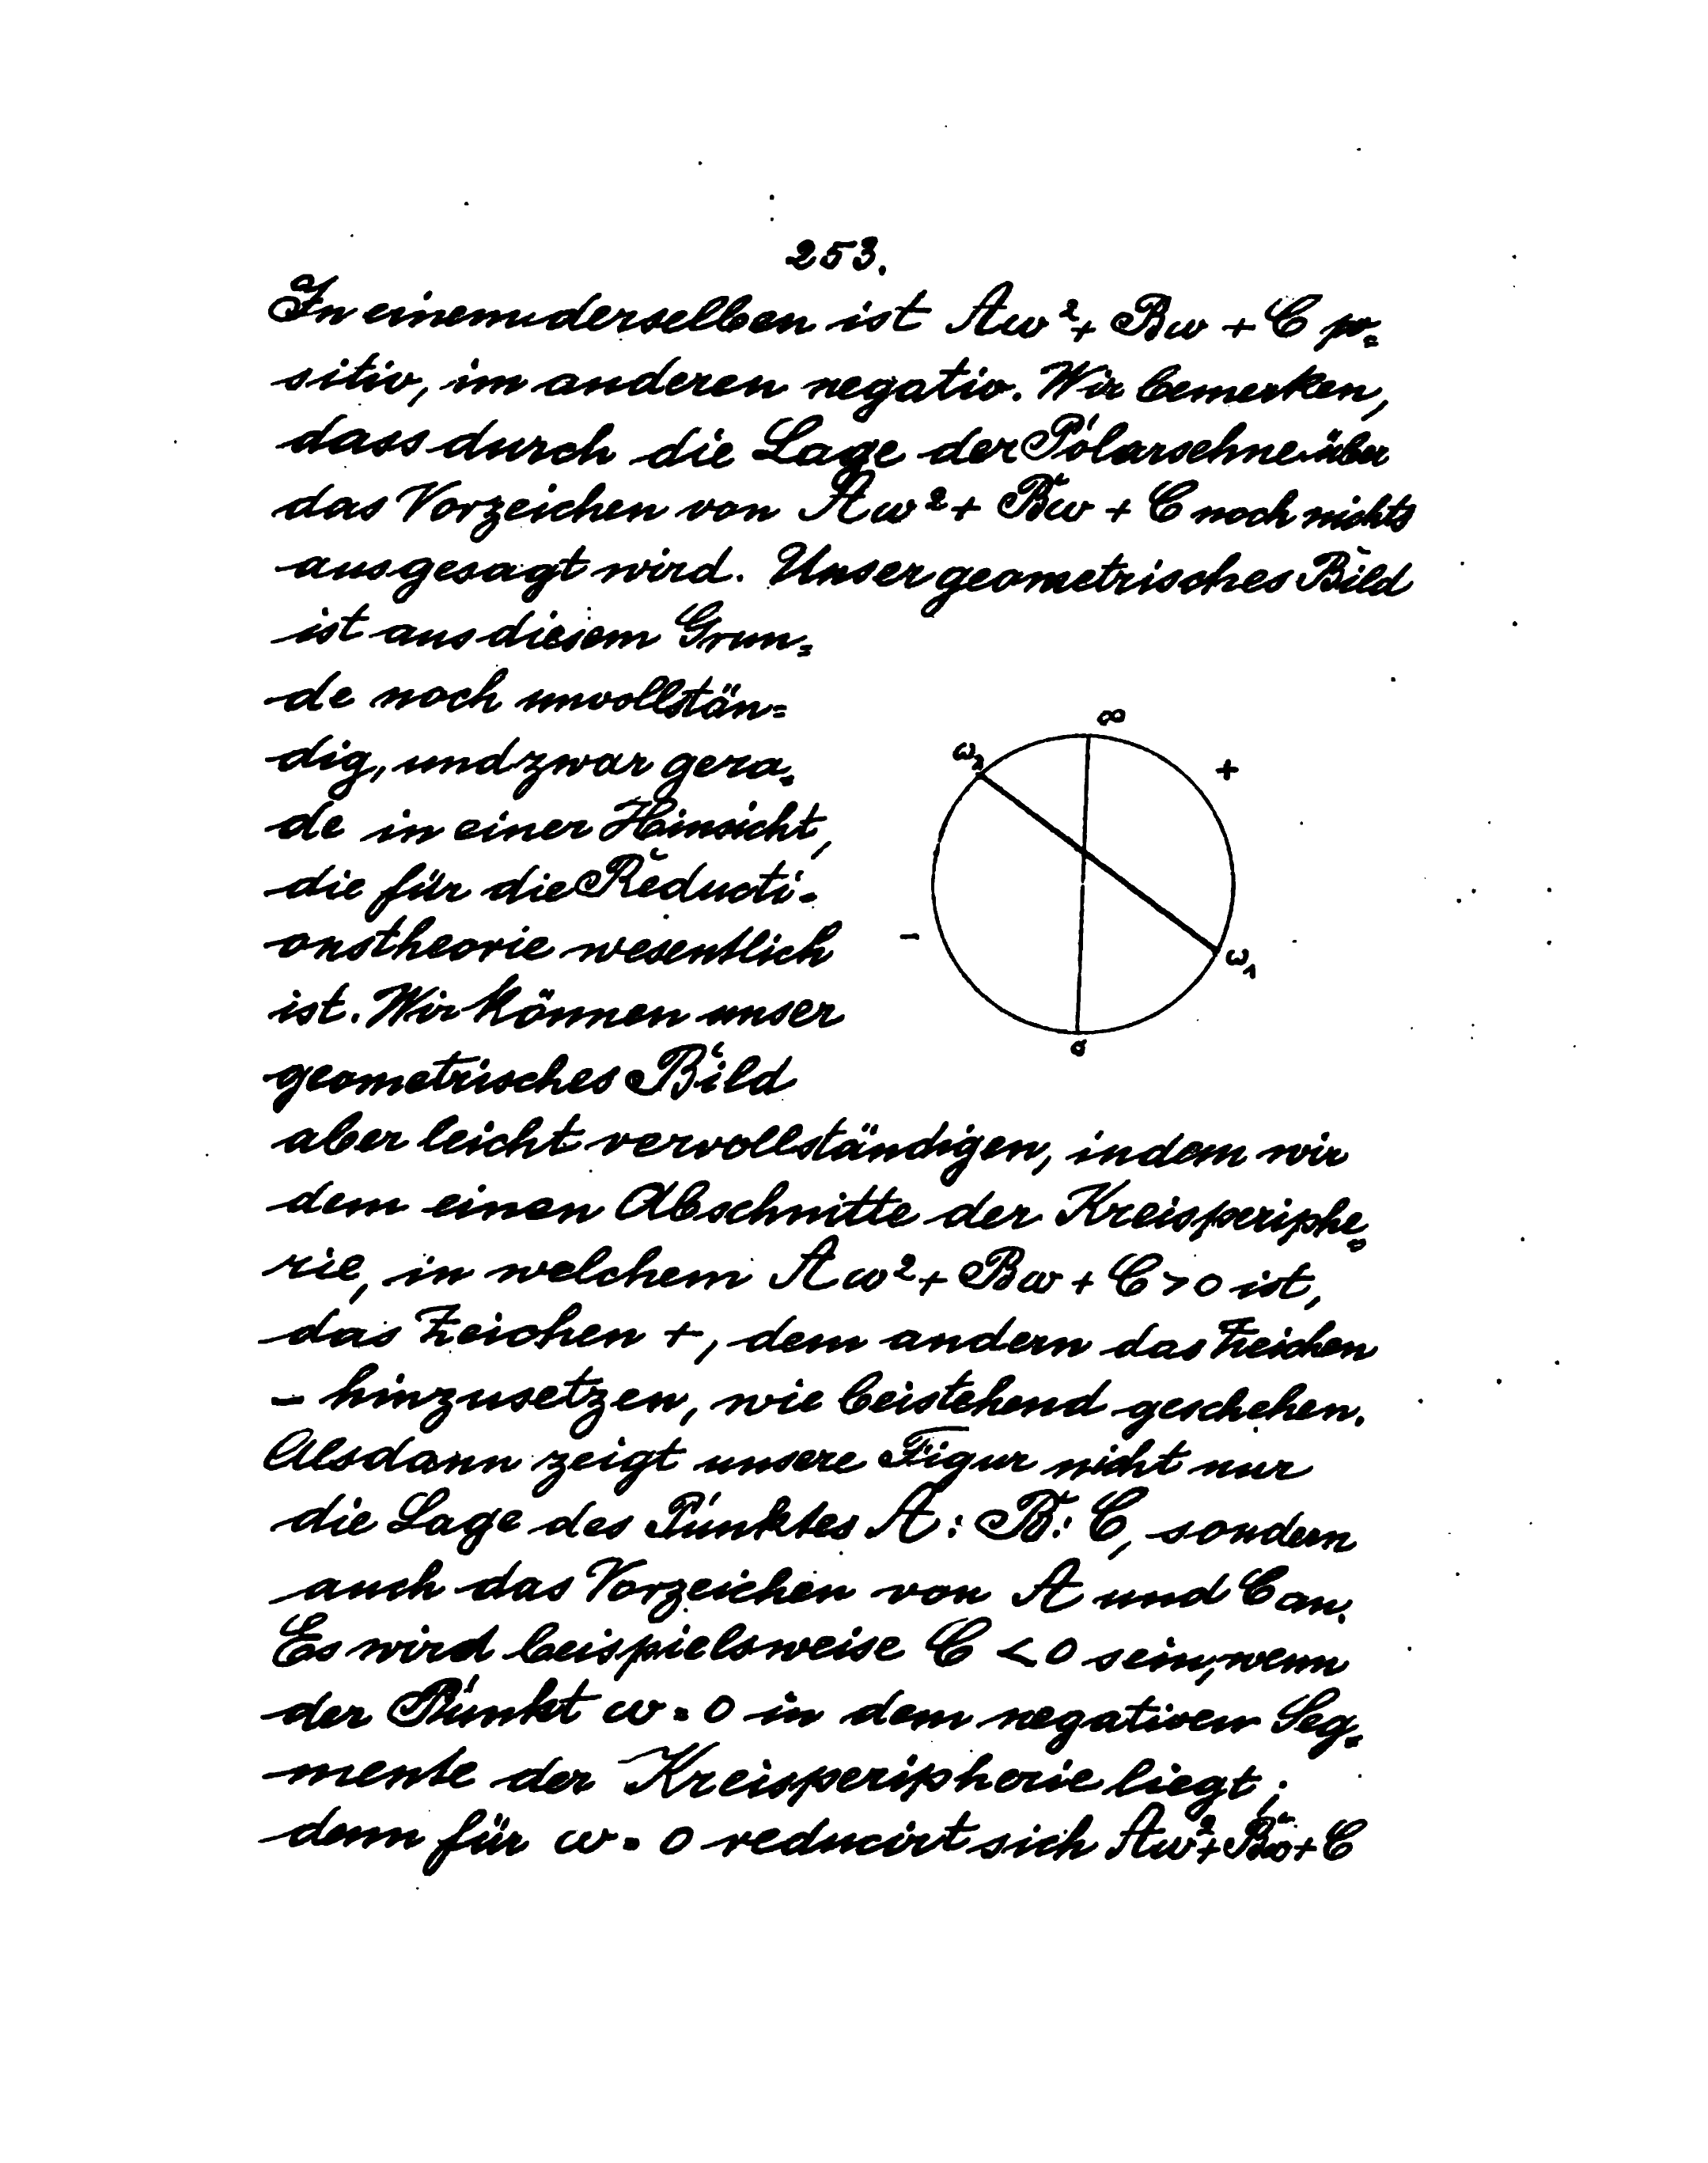 253.
In einem derselben ist Aω² + Bω + C po=
sitiv, im anderen negativ. Wir bemerken,
dass durch die Lage der Polarsehne über
das Vorzeichen von Aω² + Bω + C noch nichts
ausgesagt wird. Unser geometrisches Bild
ist aus diesem Grun=
de noch unvollstän=
dig, und zwar gera=
de in einer Hinsicht,
die für die Reducti=
onstheorie wesentlich
ist. Wir können unser
geometrisches Bild
∞
ω₂
+
-
ω₁
o
aber leicht vervollständigen, indem wir
dem einen Abschnitte der Kreisperiphe=
rie, in welchem Aω² + Bω + C > 0 ist,
das Zeichen +, dem andern das Zeichen
- hinzusetzen, wie beistehend geschehen.
Alsdann zeigt unsere Figur nicht nur
die Lage des Punktes A : B : C, sondern
auch das Vorzeichen von A und C an.
Es wird beispielsweise C < 0 sein, wenn
der Punkt ω = 0 in dem negativen Seg=
mente der Kreisperipherie liegt;
denn für ω = 0 reducirt sich Aω² + Bω + C